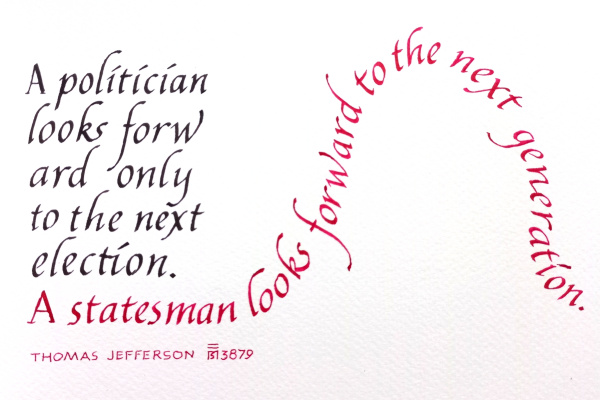 A politician
looks forw
ard only
to the next
election.
A statesman looks forward to the next generation.
THOMAS JEFFERSON 3879